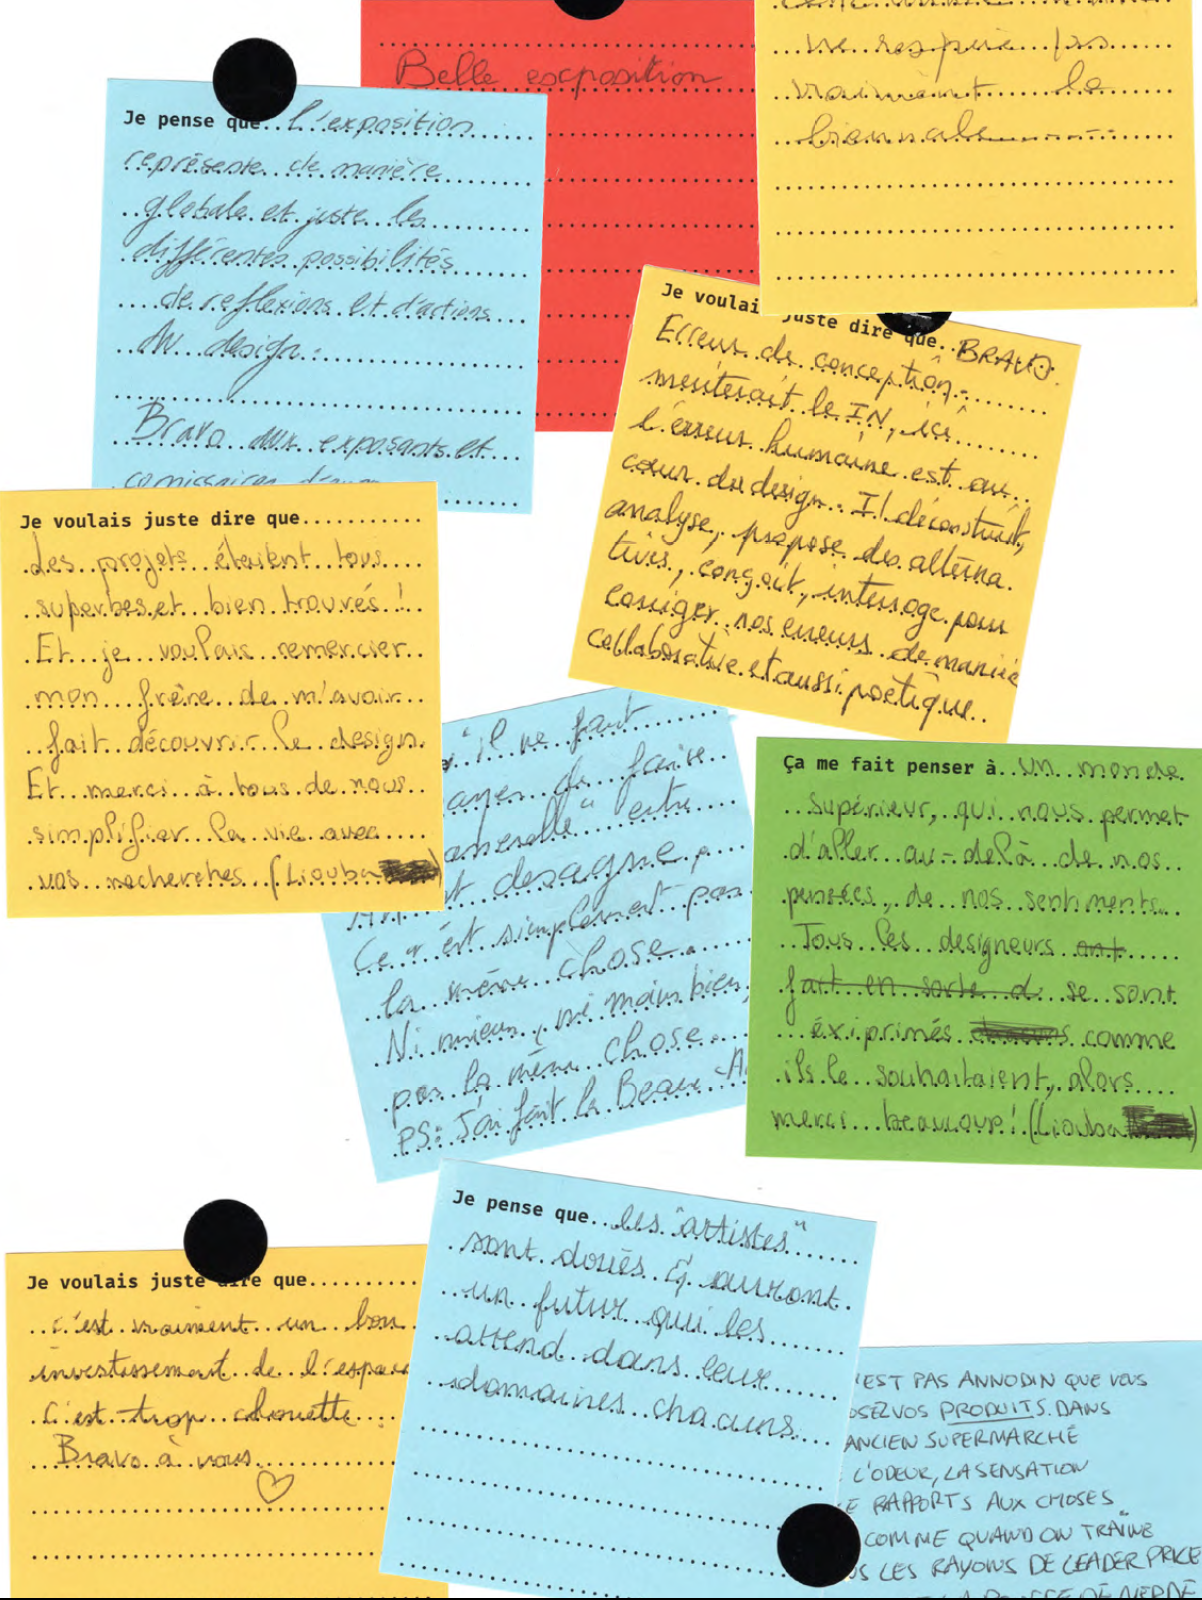 Belle exposition
ne respire pas
vraiment la
biennale
Je pense que l'exposition
représente de manière
globale et juste les
différentes possibilités
de reflexions et d'actions
du design.
Bravo aux exposants et
comissaires
Je voulais juste dire que BRAVO.
Erreur de conception
meriterait le IN, ici
l'erreur humaine est au
cœur du design. Il déconstruit,
analyse, propose des alterna.
tives, conçoit, interroge pour
corriger nos erreurs de manière
collaborative et aussi poétique.
Je voulais juste dire que
Les projets étaient tous
superbes et bien trouvés !
Et je voulais remercier
mon frère de m'avoir
fait découvrir le design.
Et merci à tous de nous
simplifier la vie avec
vos recherches. (Liouba
'il ne faut
de faire
" entre
et designe
Ce n'est simplement pas
la même chose.
Ni mieux, ni moins bien,
pas la même chose.
PS: J'ai fait la Beaux-A
Ça me fait penser à un monde
supérieur, qui nous permet
d'aller au-delà de nos
pensées, de nos sentiments.
Tous les designeurs ont
fait en sorte de se sont
éxiprimés comme
ils le souhaitaient, alors
merci beaucoup! (Liouba
Je voulais juste dire que
c'est vraiment un bon
investissement de l'espace
C'est trop chouette
Bravo à vous
Je pense que les "artistes"
sont doués & auront
un futur qui les
attend dans leur
domaines chacuns.
'EST PAS ANNODIN QUE VOUS
OSEZ VOS PRODUITS DANS
ANCIEN SUPERMARCHÉ
L'ODEUR, LA SENSATION
E RAPPORTS AUX CHOSES
COMME QUAND ON TRAÎNE
S LES RAYONS DE LEADER PRICE